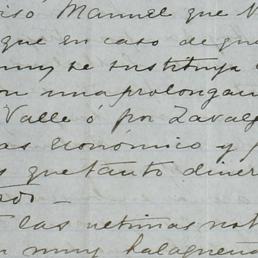 isó Manuel que N
que en caso de que
muy se sustituya
on una prolongan
Valle ó por Zavalg
as económico y p
s que tanto diner
las ultimas not
n muy halagueña